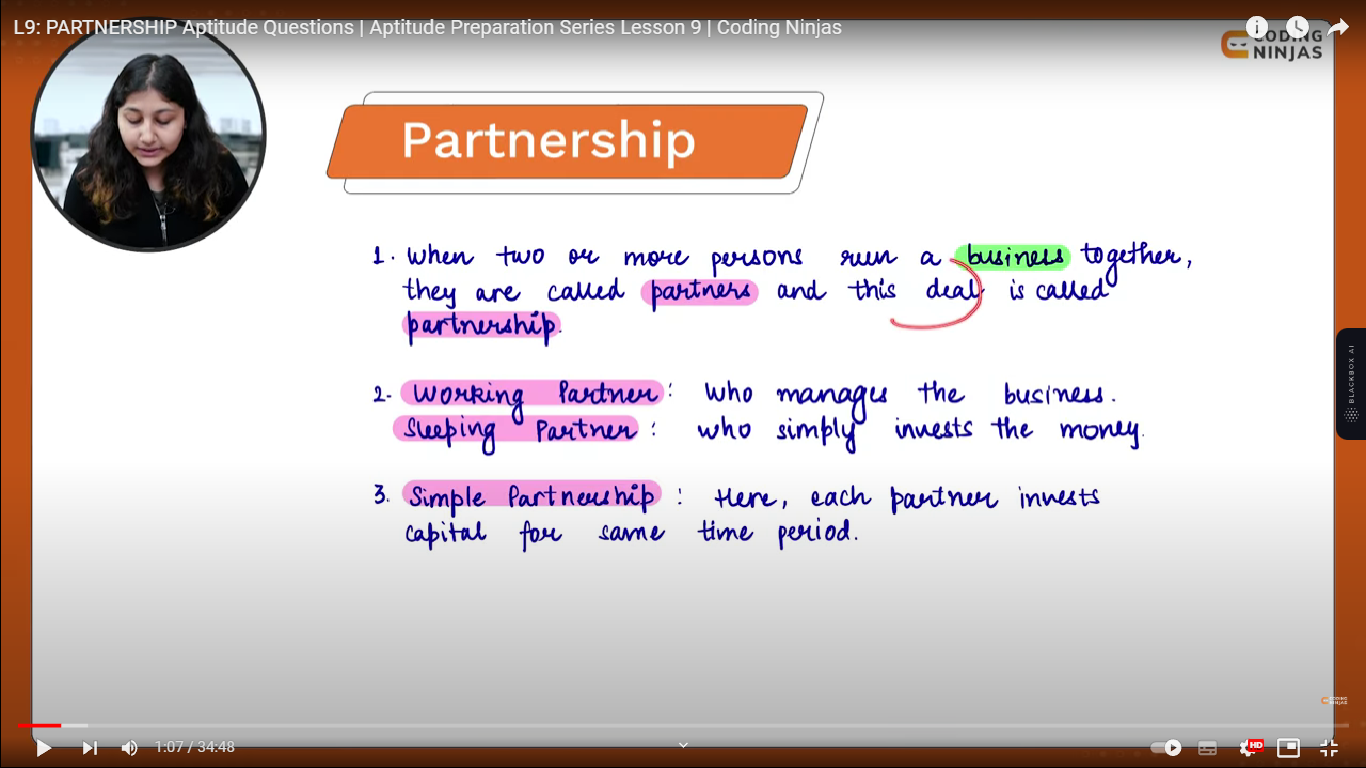 L9: PARTNERSHIP Aptitude Questions | Aptitude Preparation Series Lesson 9 | Coding Ninjas
CODING
NINJAS
Partnership
1. When two or more persons run a business together,
they are called partners and this deal is called
partnership.
2. Working Partner : who manages the business.
Sleeping Partner : who simply invests the money.
3. Simple Partnership : Here, each partner invests
capital for same time period.
BLACKBOX AI
CODING
NINJAS
1:07 / 34:48
HD